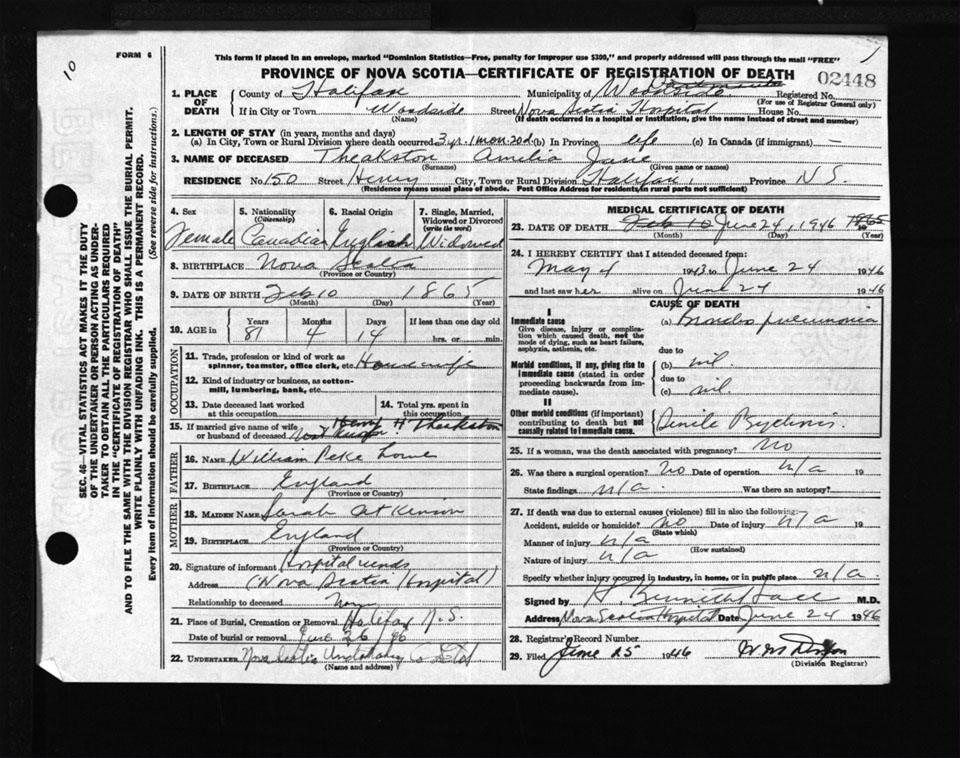 FORM 6
10
1
This form if placed in an envelope, marked "Dominion Statistics—Free, penalty for improper use $300," and properly addressed will pass through the mail "FREE"
PROVINCE OF NOVA SCOTIA—CERTIFICATE OF REGISTRATION OF DEATH
02448
1. PLACE OF DEATH
County of Halifax Municipality of Registered No.
(For use of Registrar General only)
If in City or Town Woodside Street Nova Scotia Hospital House No.
(Name) (If death occurred in a hospital or institution, give name instead of street and number)
2. LENGTH OF STAY (in years, months and days)
(a) In City, Town or Rural Division where death occurred 3 yr. 1 mon. 20d. (b) In Province life (c) In Canada (if immigrant) —
3. NAME OF DECEASED Theakston Amelia Jane
(Surname) (Given name or names)
RESIDENCE No. 150 Street Henry City, Town or Rural Division Halifax, Province N.S.
(Residence means usual place of abode. Post Office Address for residents in rural parts not sufficient)
SEC. 46—VITAL STATISTICS ACT MAKES IT THE DUTY
OF THE UNDERTAKER OR PERSON ACTING AS UNDER-
TAKER TO OBTAIN ALL THE PARTICULARS REQUIRED
IN THE "CERTIFICATE OF REGISTRATION OF DEATH"
TO FILE THE SAME WITH THE DIVISION REGISTRAR WHO SHALL ISSUE THE BURIAL PERMIT.
WRITE PLAINLY WITH UNFADING INK. THIS IS A PERMANENT RECORD.
Every item of information should be carefully supplied. (See reverse side for instructions.)
4. Sex 5. Nationality (Citizenship) 6. Racial Origin 7. Single, Married, Widowed or Divorced (write the word)
Female Canadian English Widowed
8. BIRTHPLACE Nova Scotia
(Province or Country)
9. DATE OF BIRTH Feb 10 1865
(Month) (Day) (Year)
10. AGE in Years Months Days If less than one day old
81 4 14 hrs. or min.
OCCUPATION
11. Trade, profession or kind of work as spinner, teamster, office clerk, etc. Housewife
12. Kind of industry or business, as cotton-mill, lumbering, bank, etc.
13. Date deceased last worked at this occupation
14. Total yrs. spent in this occupation
15. If married give name of wife or husband of deceased Henry H Theakston
FATHER
16. NAME William Peke Lowe
17. BIRTHPLACE England
(Province or Country)
MOTHER
18. MAIDEN NAME Sarah Atkinson
19. BIRTHPLACE England
(Province or Country)
20. Signature of informant Hospital records
Address (Nova Scotia Hospital)
Relationship to deceased
21. Place of Burial, Cremation or Removal Halifax N.S.
Date of burial or removal June 26/46
22. UNDERTAKER Nova Scotia Undertaking Co Ltd
(Name and address)
MEDICAL CERTIFICATE OF DEATH
23. DATE OF DEATH Feb 10 June 24, 1946 1865
(Month) (Day) (Year)
24. I HEREBY CERTIFY that I attended deceased from:
May 4 1943 to June 24 1946
and last saw her alive on June 24 1946
CAUSE OF DEATH
I
Immediate cause (a) Broncho pneumonia
Give disease, injury or complication which caused death, not the mode of dying, such as heart failure, asphyxia, asthenia, etc.
due to
Morbid conditions, if any, giving rise to immediate cause (stated in order proceeding backwards from immediate cause).
(b) nil.
due to
(c) nil
II
Other morbid conditions (if important) contributing to death but not causally related to immediate cause.
Senile Psychosis.
25. If a woman, was the death associated with pregnancy? NO
26. Was there a surgical operation? NO Date of operation n/a
State findings n/a Was there an autopsy?
27. If death was due to external causes (violence) fill in also the following:
Accident, suicide or homicide? NO Date of injury n/a 19
(State which)
Manner of injury n/a
(How sustained)
Nature of injury n/a
Specify whether injury occurred in industry, in home, or in public place n/a.
Signed by M.D.
Address Nova Scotia Hospital Date June 24 1946
28. Registrar's Record Number
29. Filed June 25 1946
(Division Registrar)